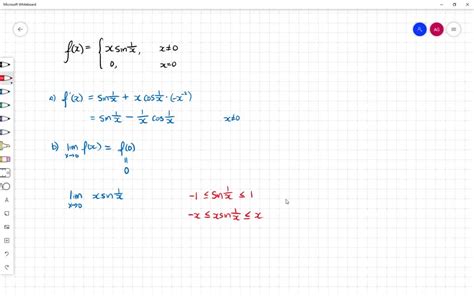 Microsoft Whiteboard
AS
f(x) = { x sin 1/x, x≠0
0, x=0
a) f'(x) = sin 1/x + x cos 1/x · (-x⁻²)
= sin 1/x - 1/x cos 1/x x≠0
b) lim x→0 f(x) = f(0)
||
0
lim x→0 x sin 1/x
-1 ≤ sin 1/x ≤ 1
-x ≤ x sin 1/x ≤ x